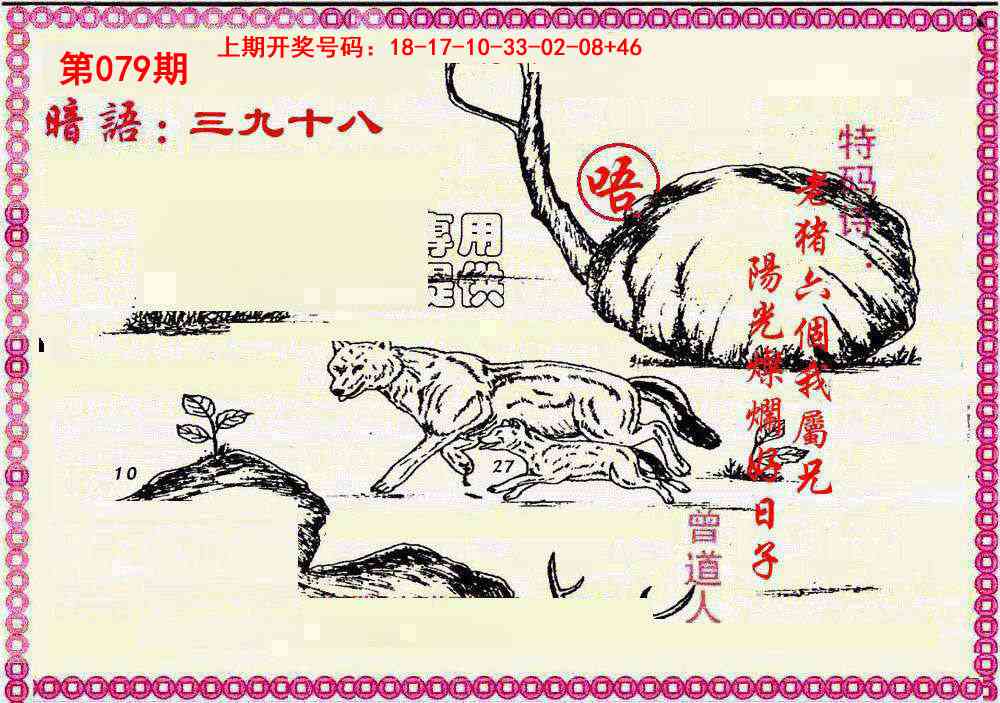 上期开奖号码：18-17-10-33-02-08+46
第079期
暗語：三九十八
唔
特码诗：
老猪六個我屬兄
陽光燦爛好日子
享用
提供
10
27
曾道人